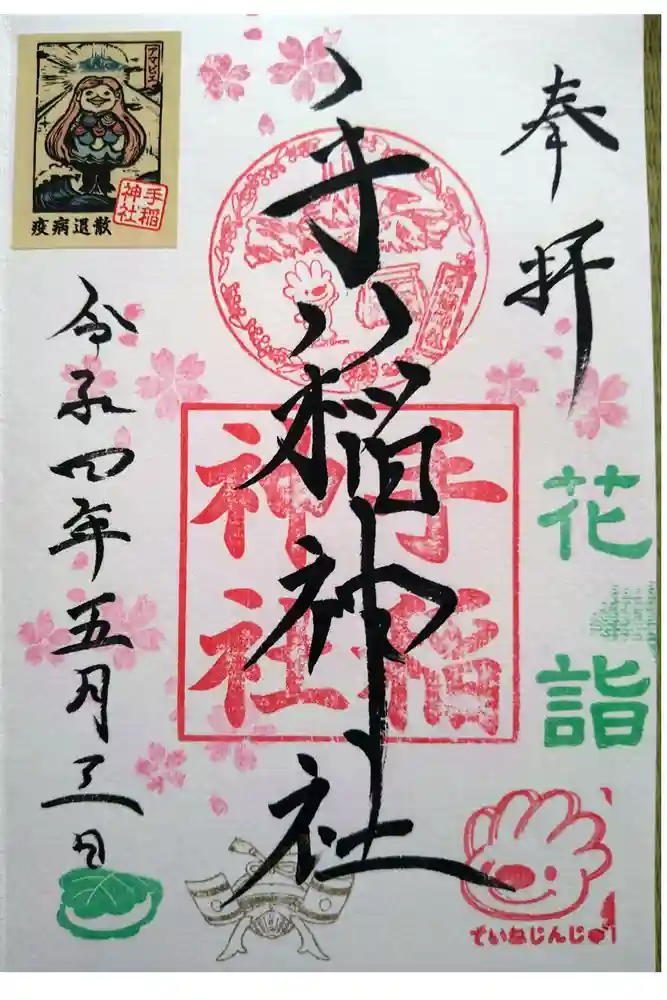 奉拝
手稲神社
令和四年五月三日
花詣
手稲
神社
アマビエ
手稲
神社
疫病退散
ていねじんじゃ